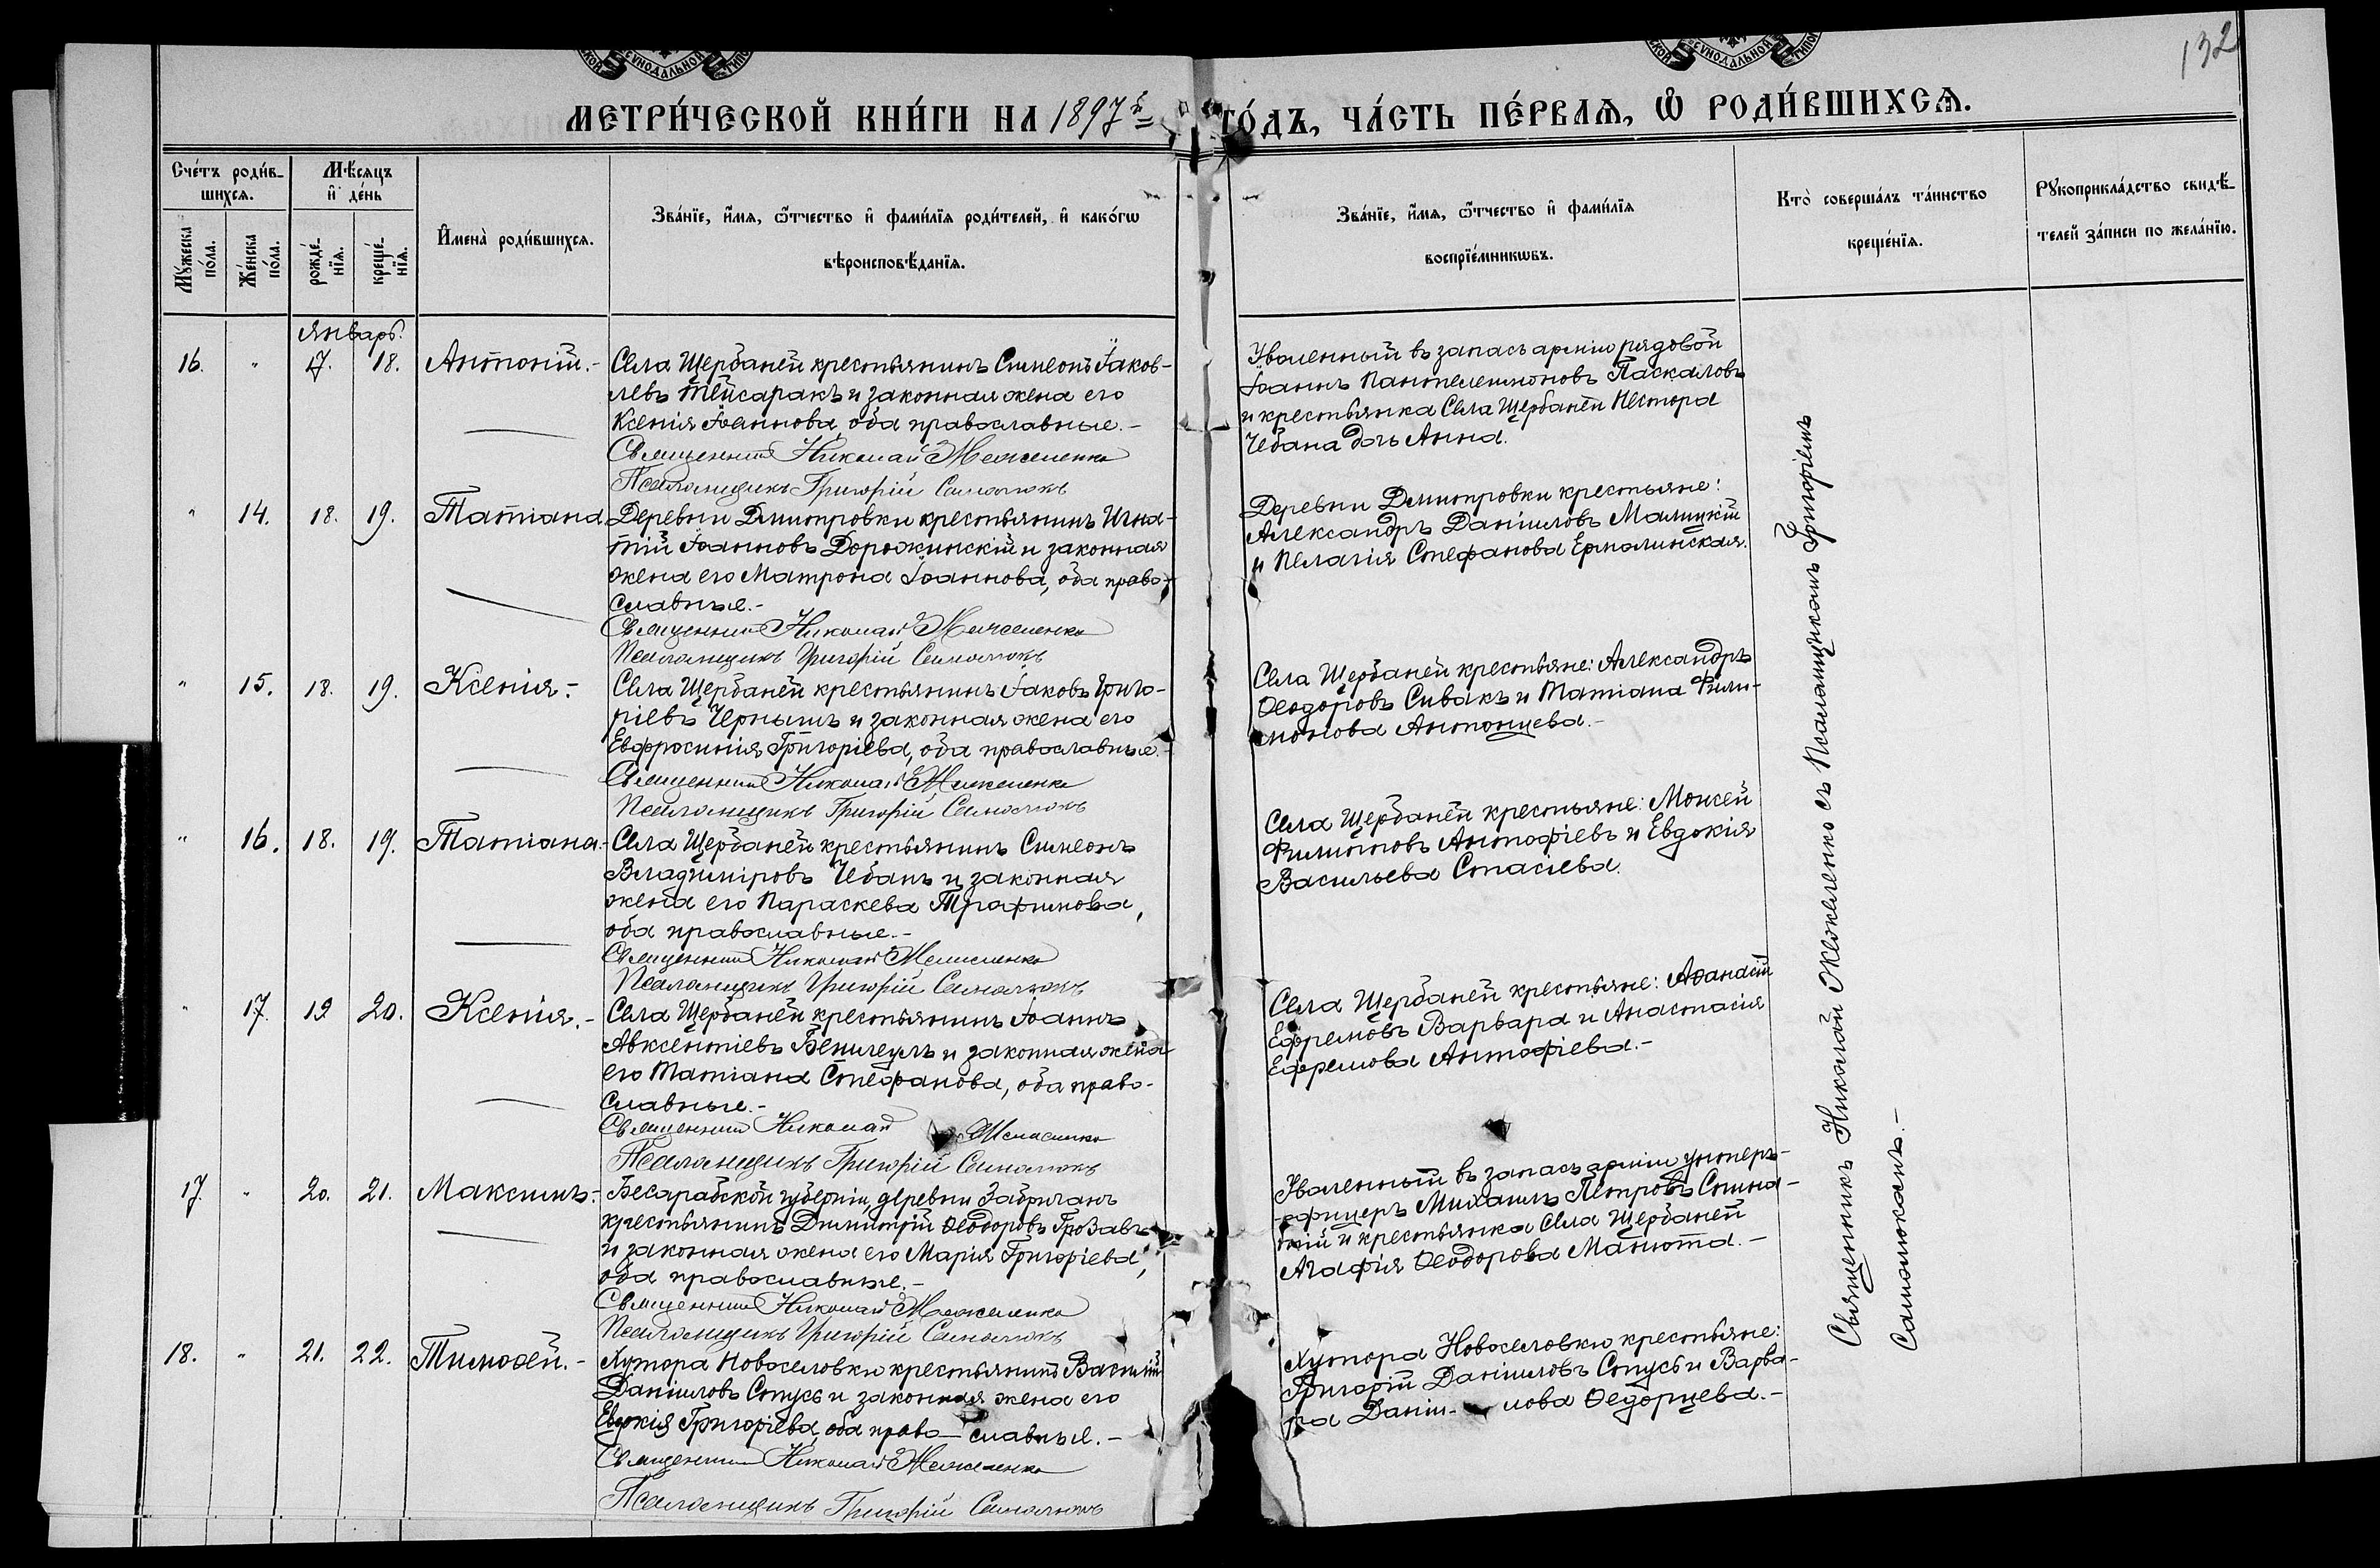 132
МЕТРИ́ЧЕСКОЙ КНИ́ГИ НА 1897й ГО́ДЪ, ЧА́СТЬ ПЕ́РВАѦ, Ѡ҆ РОДИ́ВШИХСѦ.
Сче́тъ роди́в-
шихсѧ.
Мѣ́сѧцъ
и҆ де́нь
Мꙋ́жеска
по́ла.
Же́нска
по́ла.
рожде́-
нїѧ.
креще́-
нїѧ.
И҆мена̀ роди́вшихсѧ.
Зва́нїе, и҆́мѧ, ѻ҆́тчество и҆ фами́лїѧ роди́телей, и҆ како́гѡ
вѣроисповѣ́данїѧ.
Зва́нїе, и҆́мѧ, ѻ҆́тчество и҆ фами́лїѧ
воспрїе́мникѡвъ.
Кто̀ соверша́лъ та́инство
креще́нїѧ.
Рꙋкоприкла́дство свидѣ́-
телей за́писи по жела́нїю.
Январь.
16. " 17. 18. Антоній.- Села Щербаней крестьянинъ Симеонъ Іаков-
левъ Тейсаракъ и законная жена его
Ксенія Іоаннова, оба православные.-
Священникъ Николай Межеленко
Псаломщикъ Григорій Самолюкъ
Уволенный въ запасъ арміи рядовой
Іоаннъ Пантелеимоновъ Паскаловъ
и крестьянка Села Щербаней Нестора
Чебана дочь Анна.
" 14. 18. 19. Татіана. Деревни Дмитровки крестьянинъ Игна-
тій Іоанновъ Дорожинскій и законная
жена его Матрона Іоаннова, оба право-
славные.-
Священникъ Николай Межеленко
Псаломщикъ Григорій Самолюкъ
Деревни Дмитровки крестьяне:
Александръ Даніиловъ Малицкій
и Пелагія Стефанова Ермалинская.
" 15. 18. 19. Ксенія.- Села Щербаней крестьянинъ Іаковъ Григо-
ріевъ Чернышъ и законная жена его
Евфросинія Григоріева, оба православные.-
Священникъ Николай Межеленко
Псаломщикъ Григорій Самолюкъ
Села Щербаней крестьяне: Александръ
Ѳеодоровъ Сивакъ и Татіана Фили-
монова Антонцева.-
" 16. 18. 19. Татіана.- Села Щербаней крестьянинъ Симеонъ
Владиміровъ Чебанъ и законная
жена его Параскева Трафимова,
оба православные.-
Священникъ Николай Межеленко
Псаломщикъ Григорій Самолюкъ
Села Щербаней крестьяне: Моисей
Филипповъ Антофіевъ и Евдокія
Васильева Стасіева.
" 17. 19 20. Ксенія.- Села Щербаней крестьянинъ Іоаннъ
Авксентіевъ и законная жена
его Татіана Стефанова, оба право-
славные.-
Священникъ Николай Межеленко
Псаломщикъ Григорій Самолюкъ
Села Щербаней крестьяне: Аѳанасій
Ефремовъ Варвара и Анастасія
Ефремова Антофіева.-
17. " 20. 21. Максимъ.- Бесарабской губерніи, деревни Забричанъ
крестьянинъ Димитрій Ѳеодоровъ Грозавъ
и законная жена его Марія Григоріева,
оба православные.-
Священникъ Николай Межеленко
Псаломщикъ Григорій Самолюкъ
Уволенный въ запасъ арміи унтеръ-
офицеръ Михаилъ Петровъ
и крестьянка Села Щербаней
Агафія Ѳеодорова Манюта.-
18. " 21. 22. Тимоѳей.- Хутора Новоселовки крестьянинъ Василій
Даніиловъ Стусь и законная жена его
Евдокія Григоріева, оба право-славные.-
Священникъ Николай Межеленко
Псаломщикъ Григорій Самолюкъ
Хутора Новоселовки крестьяне:
Григорій Даніиловъ Стусь и Варва-
ра Даніи-лова Ѳедорцева.-
Священникъ Николай Межеленко съ Псаломщикомъ Григоріемъ
Самолюкомъ.-